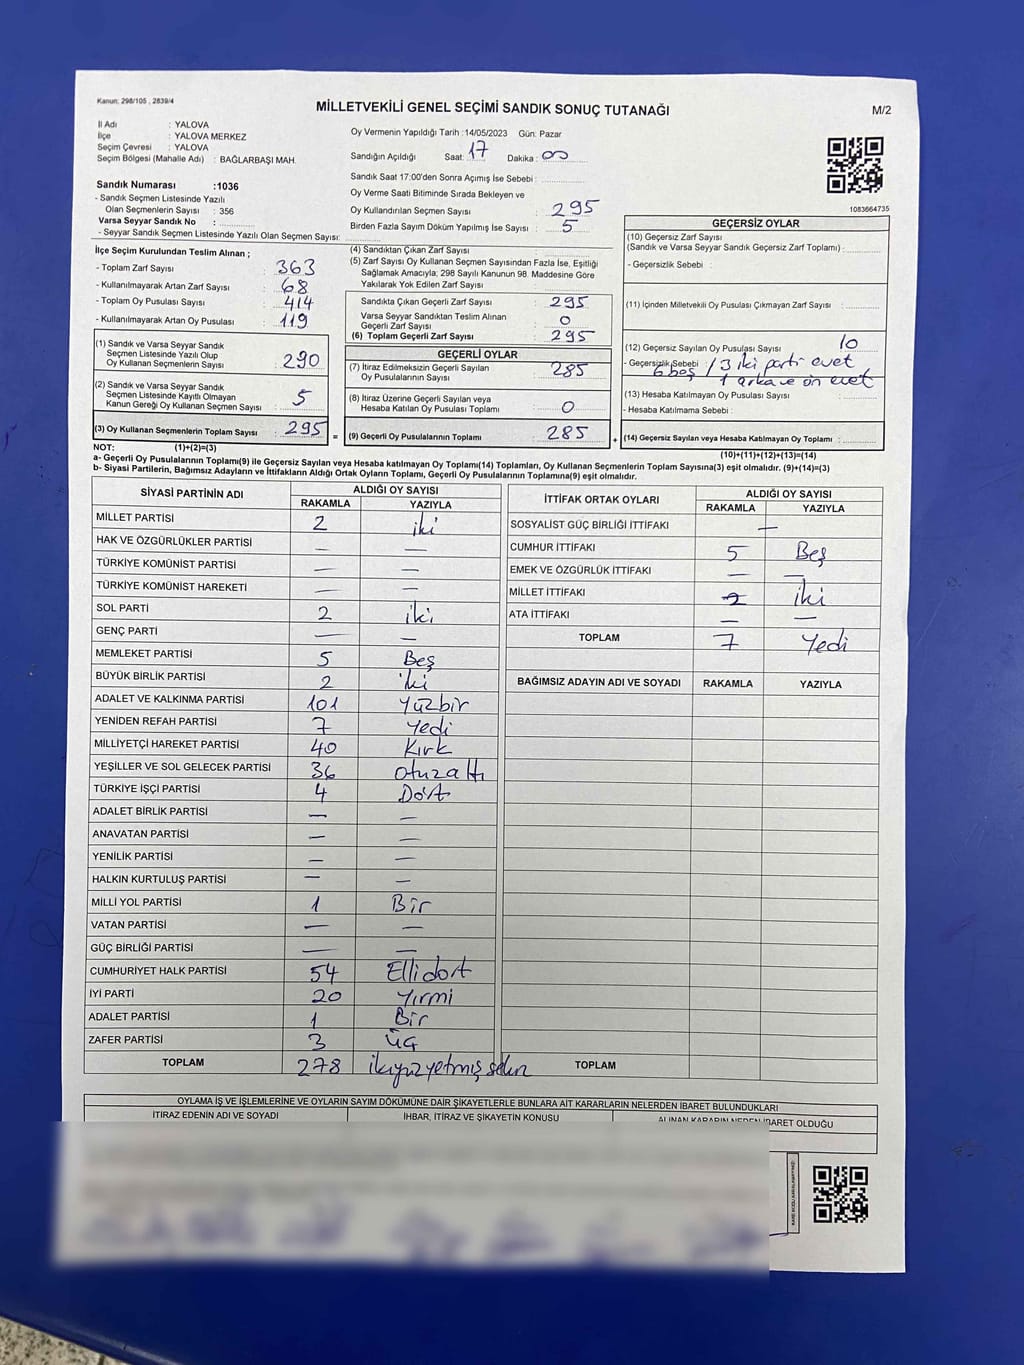 Kanun: 298/105 , 2839/4
MİLLETVEKİLİ GENEL SEÇİMİ SANDIK SONUÇ TUTANAĞI
M/2
İl Adı : YALOVA
İlçe : YALOVA MERKEZ
Seçim Çevresi : YALOVA
Seçim Bölgesi (Mahalle Adı) : BAĞLARBAŞI MAH.
Sandık Numarası :1036
- Sandık Seçmen Listesinde Yazılı
Olan Seçmenlerin Sayısı : 356
Varsa Seyyar Sandık No :
- Seyyar Sandık Seçmen Listesinde Yazılı Olan Seçmen Sayısı:
Oy Vermenin Yapıldığı Tarih :14/05/2023 Gün: Pazar
Sandığın Açıldığı Saat: 17 Dakika : 00
Sandık Saat 17:00'den Sonra Açımış İse Sebebi :
Oy Verme Saati Bitiminde Sırada Bekleyen ve
Oy Kullandırılan Seçmen Sayısı : 295
Birden Fazla Sayım Döküm Yapılmış İse Sayısı : 5
1083664735
İlçe Seçim Kurulundan Teslim Alınan ;
- Toplam Zarf Sayısı : 363
- Kullanılmayarak Artan Zarf Sayısı : 68
- Toplam Oy Pusulası Sayısı : 414
- Kullanılmayarak Artan Oy Pusulası : 119
(1) Sandık ve Varsa Seyyar Sandık
Seçmen Listesinde Yazılı Olup
Oy Kullanan Seçmen Sayısı : 290
(2) Sandık ve Varsa Seyyar Sandık
Seçmen Listesinde Kayıtlı Olmayan
Kanun Gereği Oy Kullanan Seçmen Sayısı : 5
(3) Oy Kullanan Seçmenlerin Toplam Sayısı : 295
=
(4) Sandıktan Çıkan Zarf Sayısı :
(5) Zarf Sayısı Oy Kullanan Seçmen Sayısından Fazla İse, Eşitliği
Sağlamak Amacıyla; 298 Sayılı Kanunun 98. Maddesine Göre
Yakılarak Yok Edilen Zarf Sayısı :
Sandıkta Çıkan Geçerli Zarf Sayısı : 295
Varsa Seyyar Sandıktan Teslim Alınan
Geçerli Zarf Sayısı : 0
(6) Toplam Geçerli Zarf Sayısı : 295
GEÇERLİ OYLAR
(7) İtiraz Edilmeksizin Geçerli Sayılan
Oy Pusulalarının Sayısı : 285
(8) İtiraz Üzerine Geçerli Sayılan veya
Hesaba Katılan Oy Pusulası Toplamı : 0
(9) Geçerli Oy Pusulalarının Toplamı : 285
+
GEÇERSİZ OYLAR
(10) Geçersiz Zarf Sayısı
(Sandık ve Varsa Seyyar Sandık Geçersiz Zarf Toplamı) :
- Geçersizlik Sebebi :
(11) İçinden Milletvekili Oy Pusulası Çıkmayan Zarf Sayısı :
(12) Geçersiz Sayılan Oy Pusulası Sayısı : 10
- Geçersizlik Sebebi : 6 boş / 3 iki parti evet
1 arka ve ön evet
(13) Hesaba Katılmayan Oy Pusulası Sayısı :
- Hesaba Katılmama Sebebi :
(14) Geçersiz Sayılan veya Hesaba Katılmayan Oy Toplamı :
NOT: (1)+(2)=(3)
(10)+(11)+(12)+(13)=(14)
a- Geçerli Oy Pusulalarının Toplamı(9) ile Geçersiz Sayılan veya Hesaba katılmayan Oy Toplamı(14) Toplamları, Oy Kullanan Seçmenlerin Toplam Sayısına(3) eşit olmalıdır. (9)+(14)=(3)
b- Siyasi Partilerin, Bağımsız Adayların ve İttifakların Aldığı Ortak Oyların Toplamı, Geçerli Oy Pusulalarının Toplamına(9) eşit olmalıdır.
SİYASİ PARTİNİN ADI ALDIĞI OY SAYISI
RAKAMLA YAZIYLA
MİLLET PARTİSİ 2 iki
HAK VE ÖZGÜRLÜKLER PARTİSİ — —
TÜRKİYE KOMÜNİST PARTİSİ — —
TÜRKİYE KOMÜNİST HAREKETİ — —
SOL PARTİ 2 iki
GENÇ PARTİ — —
MEMLEKET PARTİSİ 5 Beş
BÜYÜK BİRLİK PARTİSİ 2 iki
ADALET VE KALKINMA PARTİSİ 101 Yüzbir
YENİDEN REFAH PARTİSİ 7 Yedi
MİLLİYETÇİ HAREKET PARTİSİ 40 Kırk
YEŞİLLER VE SOL GELECEK PARTİSİ 36 otuzaltı
TÜRKİYE İŞÇİ PARTİSİ 4 Dört
ADALET BİRLİK PARTİSİ — —
ANAVATAN PARTİSİ — —
YENİLİK PARTİSİ — —
HALKIN KURTULUŞ PARTİSİ — —
MİLLİ YOL PARTİSİ 1 Bir
VATAN PARTİSİ — —
GÜÇ BİRLİĞİ PARTİSİ — —
CUMHURİYET HALK PARTİSİ 54 Ellidört
İYİ PARTİ 20 Yirmi
ADALET PARTİSİ 1 Bir
ZAFER PARTİSİ 3 üç
TOPLAM 278 ikiyüzyetmişsekin
İTTİFAK ORTAK OYLARI ALDIĞI OY SAYISI
RAKAMLA YAZIYLA
SOSYALİST GÜÇ BİRLİĞİ İTTİFAKI —
CUMHUR İTTİFAKI 5 Beş
EMEK VE ÖZGÜRLÜK İTTİFAKI — —
MİLLET İTTİFAKI 2 iki
ATA İTTİFAKI — —
TOPLAM 7 Yedi
BAĞIMSIZ ADAYIN ADI VE SOYADI RAKAMLA YAZIYLA
TOPLAM
OYLAMA İŞ VE İŞLEMLERİNE VE OYLARIN SAYIM DÖKÜMÜNE DAİR ŞİKAYETLERLE BUNLARA AİT KARARLARIN NELERDEN İBARET BULUNDUKLARI
İTİRAZ EDENİN ADI VE SOYADI İHBAR, İTİRAZ VE ŞİKAYETİN KONUSU ALINAN KARARIN NEDEN İBARET OLDUĞU